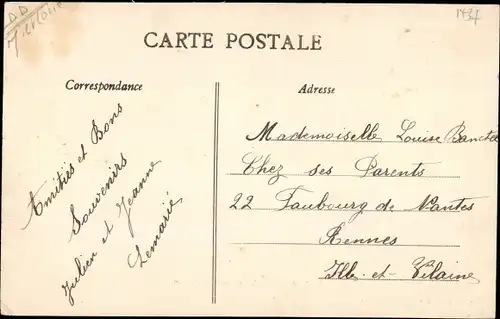 CARTE POSTALE
Correspondance
Adresse
Amitiés et Bons
Souvenirs
Julien et Jeanne
Lemarié
Mademoiselle Louise
Chez ses Parents
22 Faubourg de Nantes
Rennes
Ille-et-Vilaine